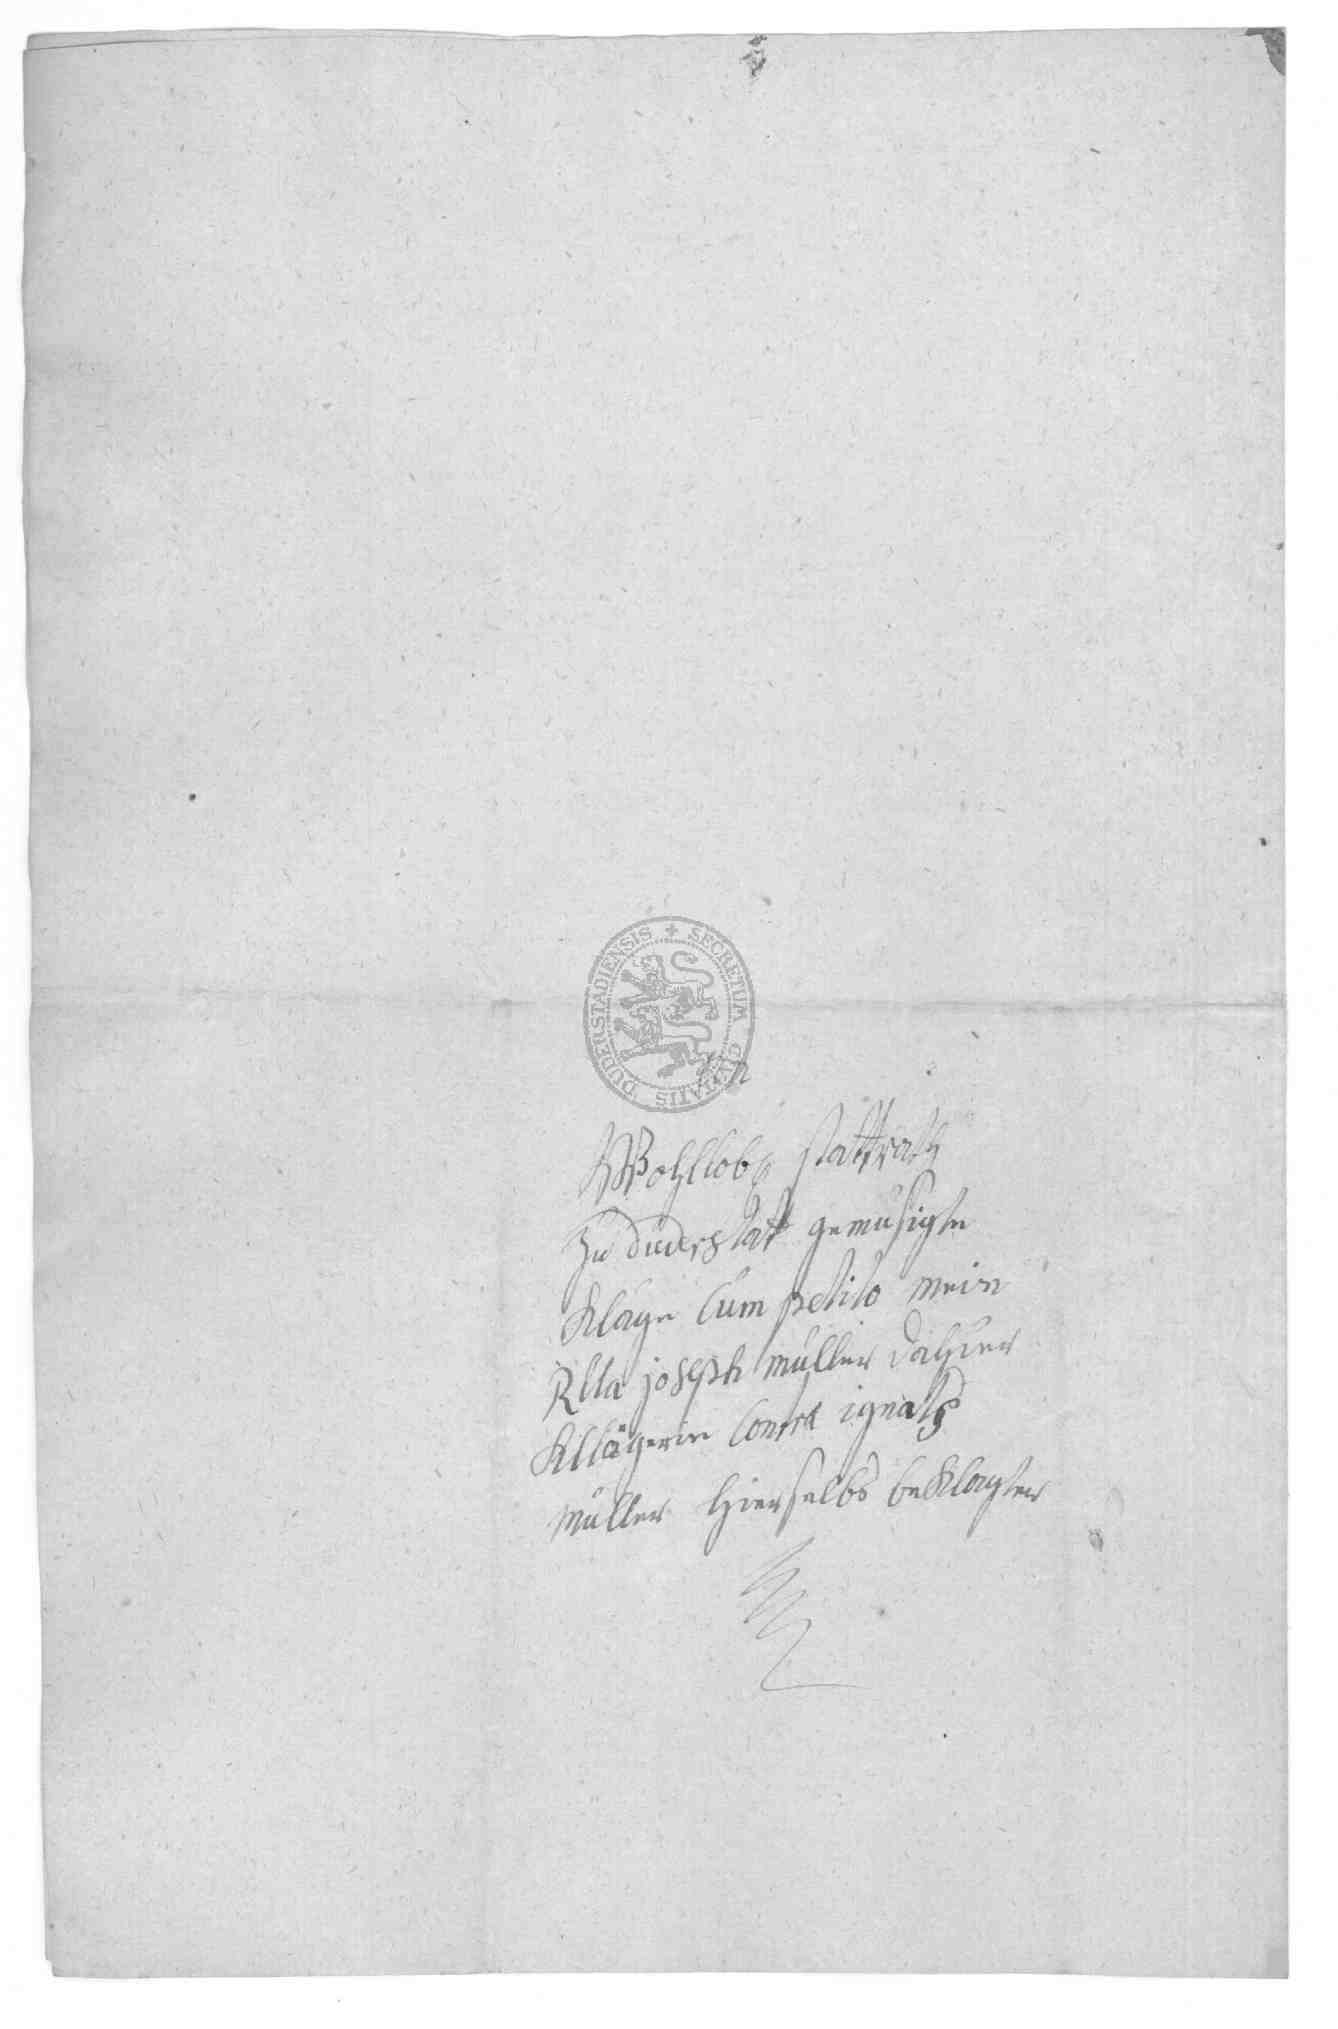 SECRETUM CIVITATIS DUDERSTADIENSIS
An
Wohllobl stattrath
zu duderstatt gemüsigte
Klage Cum petito mein
Rlta joseph müller dahier
Kllägerin Contra ignatz
müller hierselbs beklagten